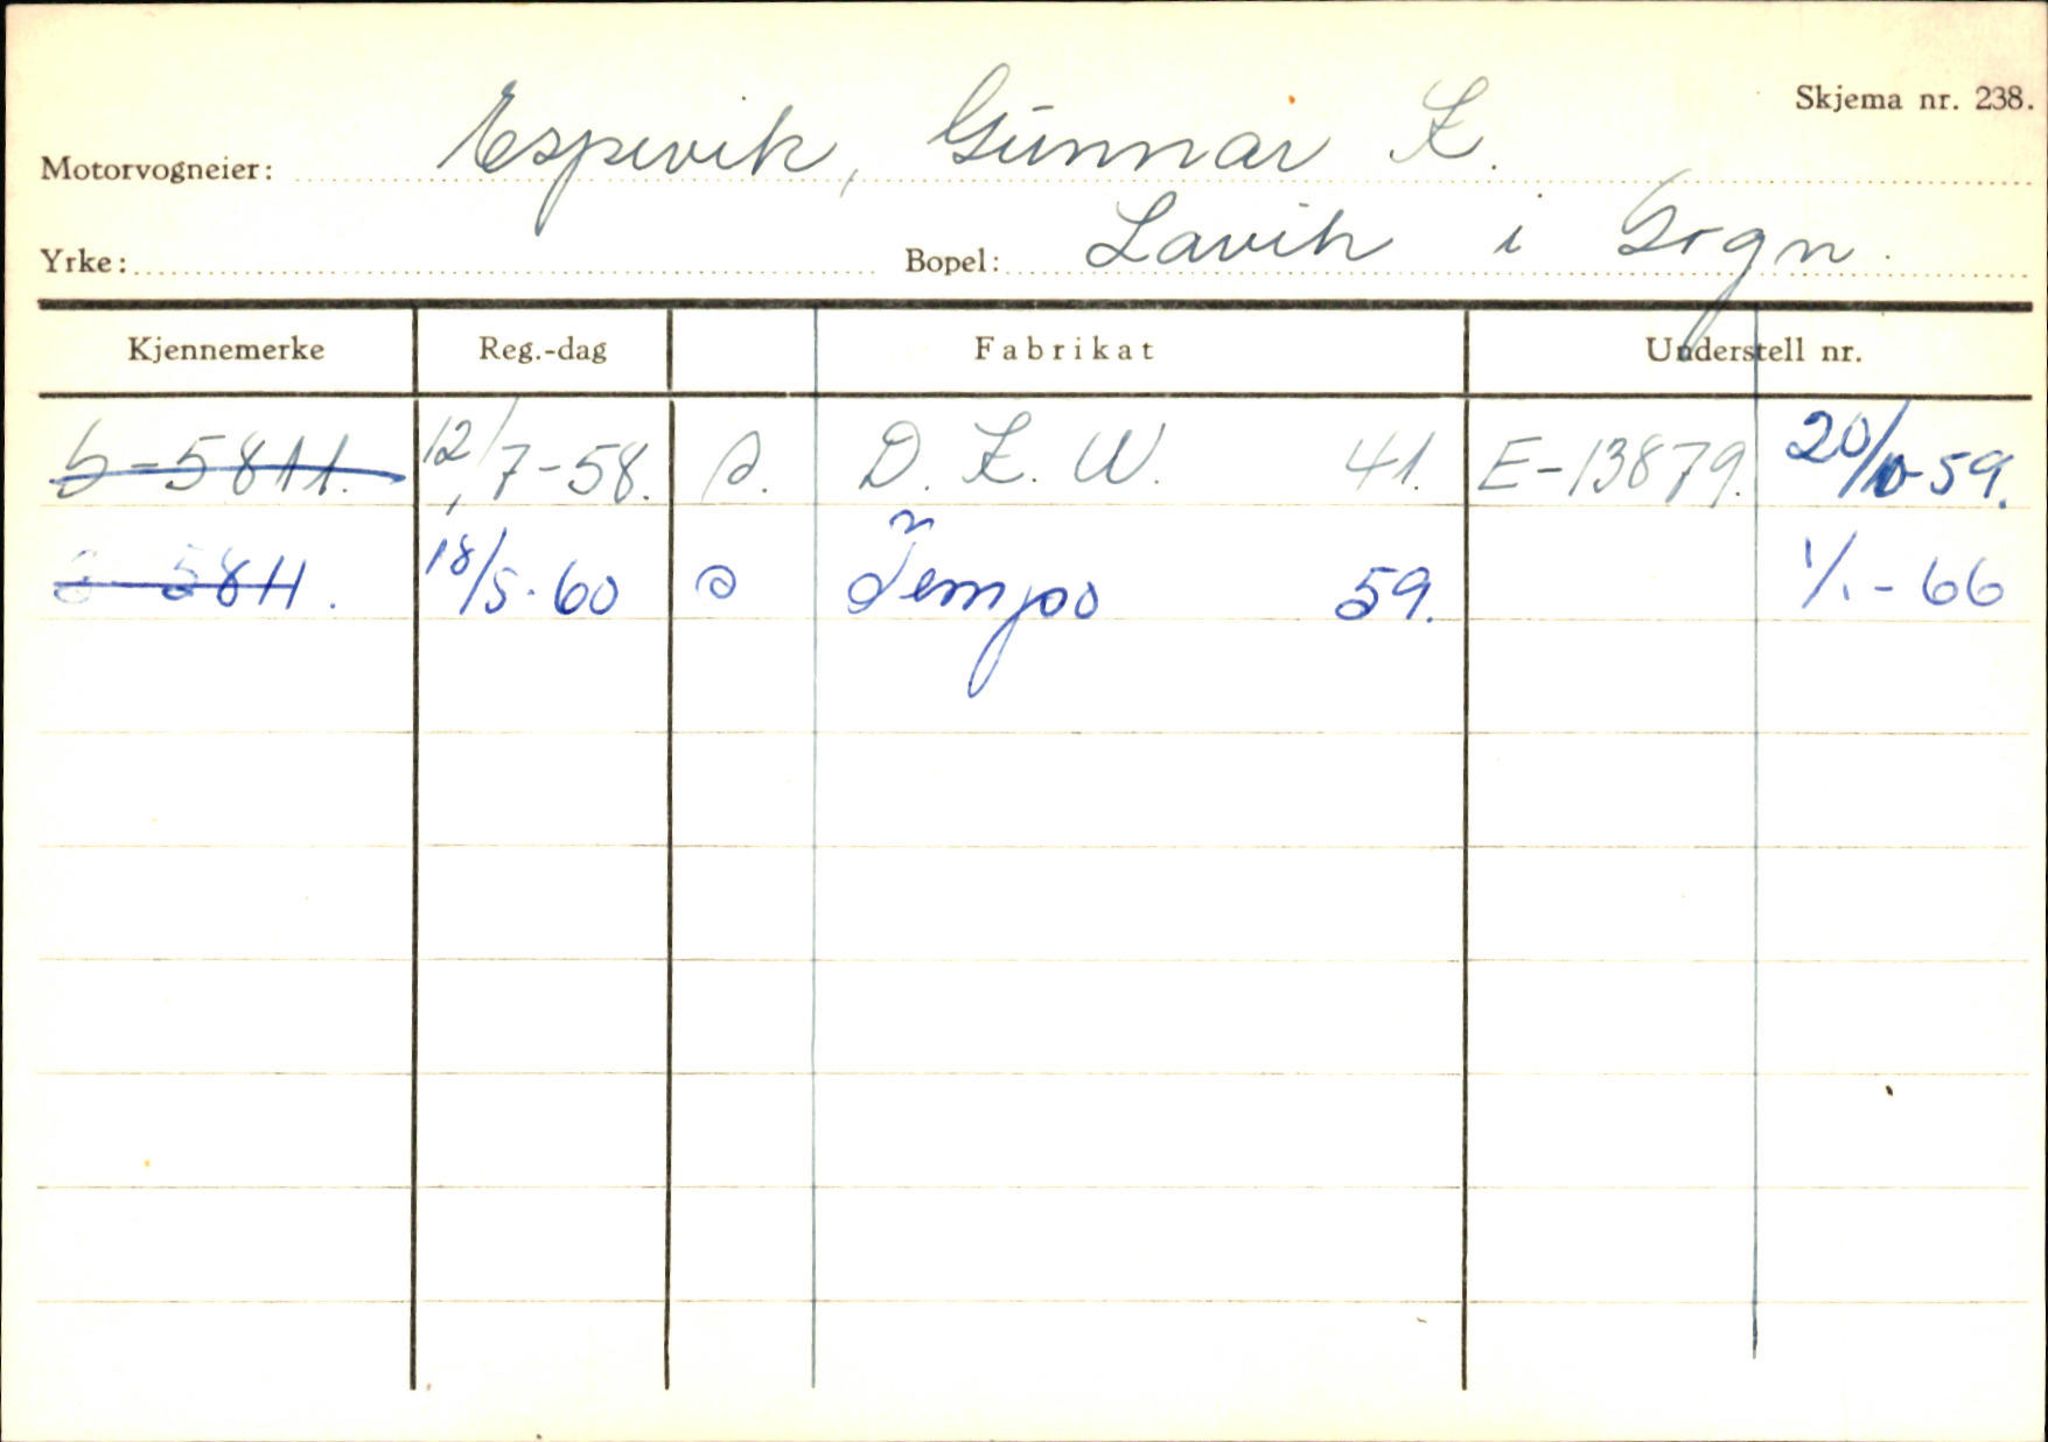 Skjema nr. 238.
Motorvogneier: Espevik, Gunnar K.
Yrke: Bopel: Lavik i Sogn.
Kjennemerke Reg.-dag Fabrikat Understell nr.
S-5811. 12/7-58. s. D. K. W. 41. E-13879. 20/10-59.
S-5811. 18/5-60 s Tempo 59. 1/1-66